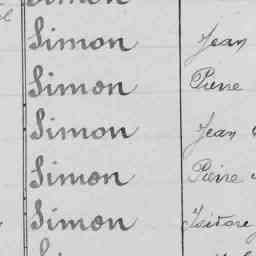 Simon Jean
Simon Pierre
Simon Jean
Simon Pierre
Simon Isidore